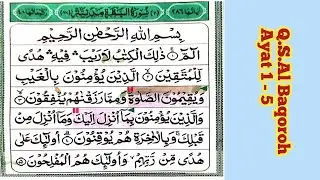 بِسْمِ اللّٰهِ الرَّحْمٰنِ الرَّحِيْمِ
الٓمّٓ ذٰلِكَ الْكِتٰبُ لَا رَيْبَ فِيْهِ هُدًى
لِّلْمُتَّقِيْنَ الَّذِيْنَ يُؤْمِنُوْنَ بِالْغَيْبِ
وَيُقِيْمُوْنَ الصَّلٰوةَ وَمِمَّا رَزَقْنٰهُمْ يُنْفِقُوْنَ
وَالَّذِيْنَ يُؤْمِنُوْنَ بِمَآ اُنْزِلَ اِلَيْكَ وَمَآ اُنْزِلَ مِنْ
قَبْلِكَ وَبِالْاٰخِرَةِ هُمْ يُوْقِنُوْنَ اُولٰٓئِكَ عَلٰى
هُدًى مِّنْ رَّبِّهِمْ وَاُولٰٓئِكَ هُمُ الْمُفْلِحُوْنَ
Q.S Al Baqoroh
Ayat 1 - 5